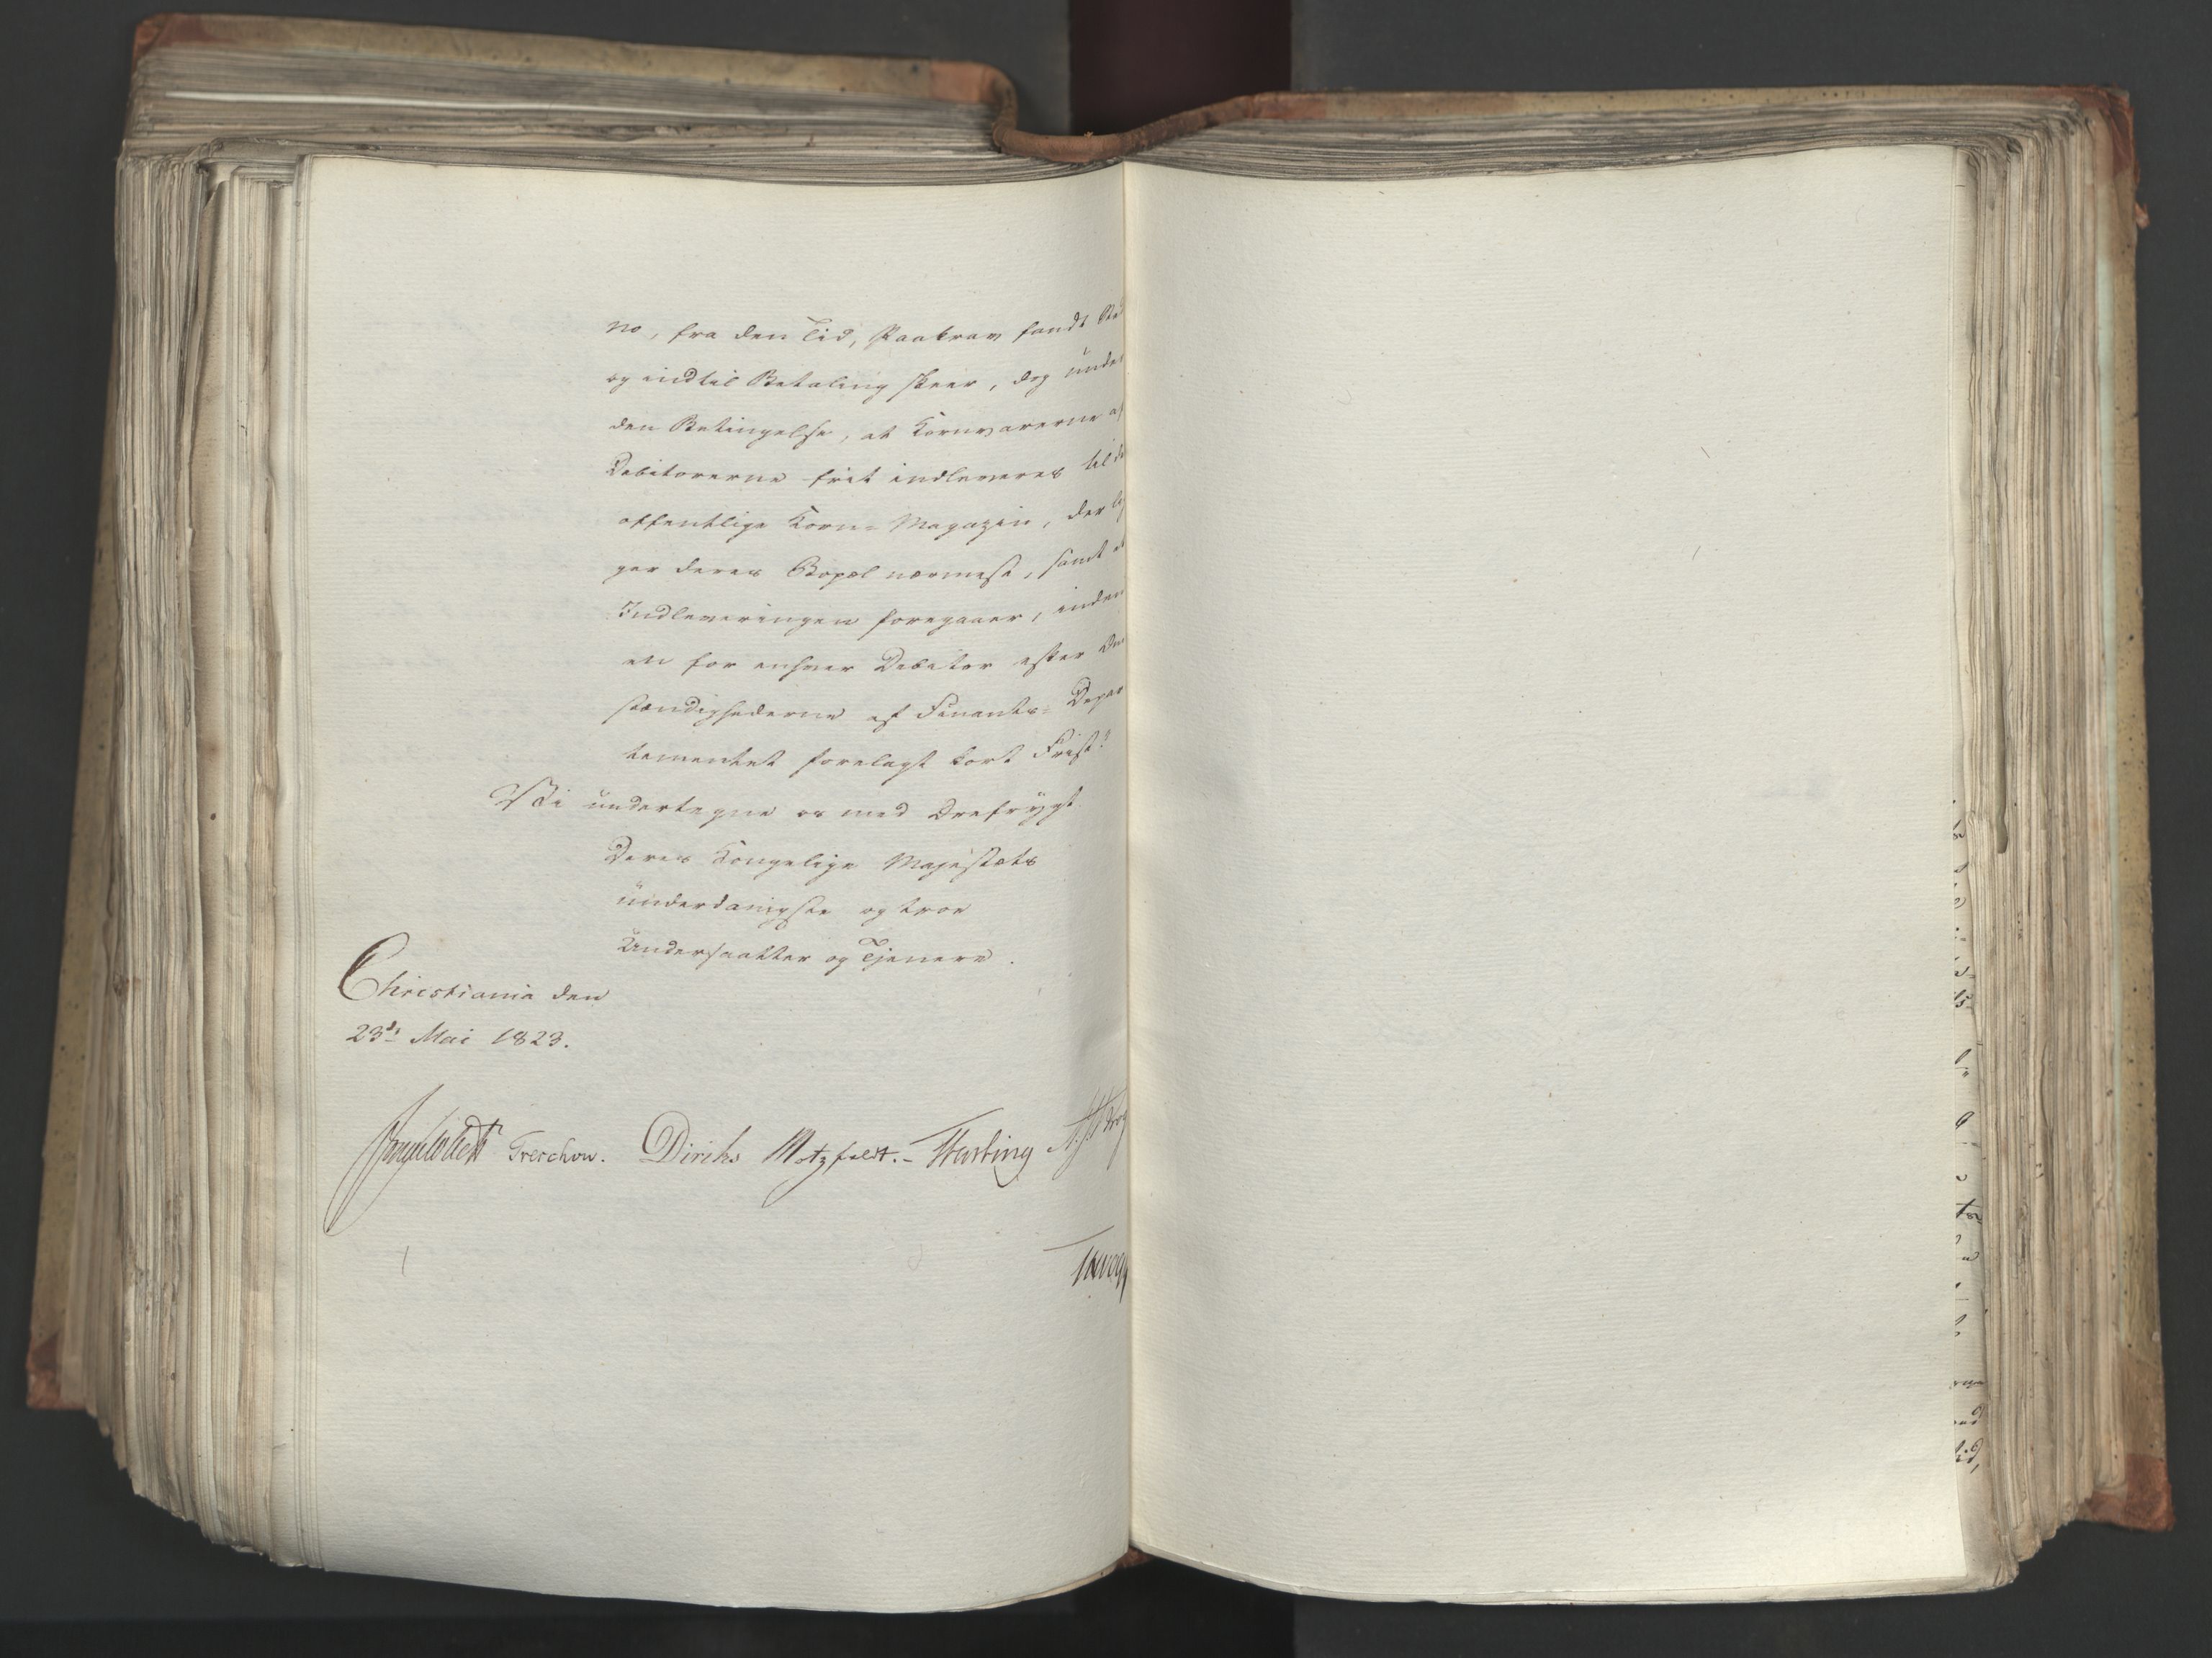 no, fra den Tid, Paakrav fandt Sted
og indtil Betaling skeer, dog under
den Betingelse, at Kornvarerne af
Debitorerne frit indleveres til de
offentlige Korn-Magazin, der lig
ger deres Bopæl nærmest, samt at
Indleveringen foregaaer, inden
en for enhver Debitor efter Om
stændighederne af Finants-Depar
tementet forelagt kort Frist."
Vi undertegne os med Ærefrygt
Deres Kongelige Majestæts
underdanigste og troe
Undersaatter og Tjenere.
Christiania den
23de Mai 1823.
Treschow. Diriks Motzfeldt.- Fasting